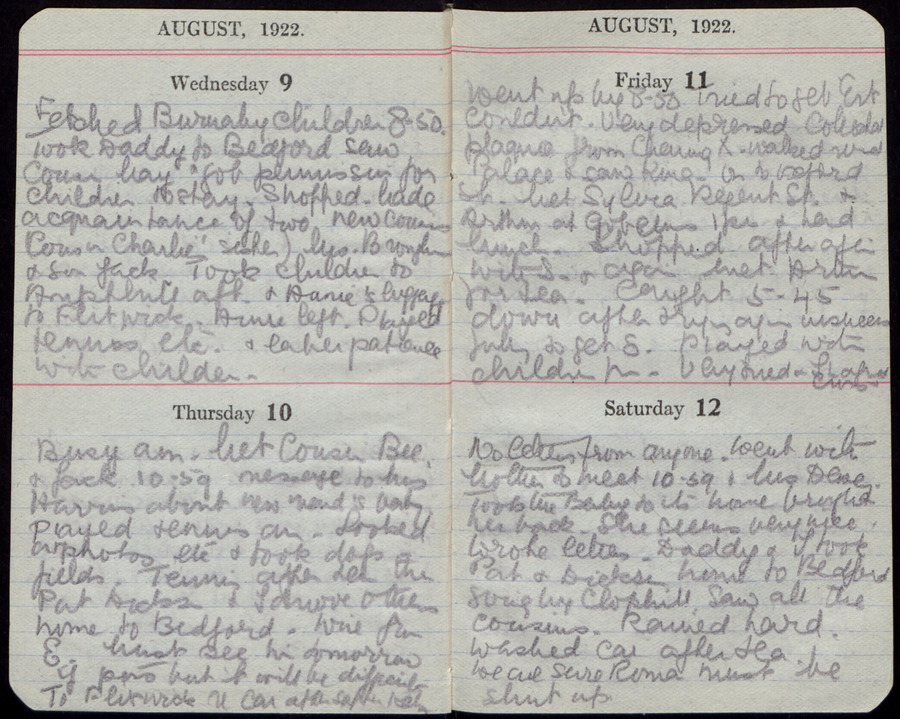 AUGUST, 1922.
Wednesday 9
Fetched Burnaby Children 8-50.
took Daddy to Bedford saw
Cousin May & got permission for
children to stay. Shopped. made
acquaintance of two new cousins
Cousin Charlie's sister) Mrs.
& son Jack Took children to
Ampthill aft. & Annie's luggage
to Flitwick. Annie left. Played
tennis etc. & later patience
with children.
Thursday 10
Busy am. Met Cousin Bee
& Jack 10-59 message to Mrs
Harris about
Played tennis am. Looked
at photos etc & took dogs
fields. Tennis after tea the
Pat Dickson & I drove others
home to Bedford. Wire from
E. Must see him tomorrow
if poss but it will be difficult
To Flitwick in car after
AUGUST, 1922.
Friday 11
Went up by 8-50 Tried to get Ext
conduit. Very depressed
from Charing X. walked round
Palace & saw King. On to Oxford
St. Met Sylvia Regent St. &
Arthur at & had
lunch. Shopped after again
with S. & again met Arthur
for tea. Caught 5-45
down after trying again
to get S. Played with
children pm. Very tired
Saturday 12
No letters from anyone. Went with
Mother to meet 10-59 & Miss
took the Baby to its home brought
her back. She seems very nice.
Wrote letters. Daddy & I took
Pat & Dickson home to Bedford
going by Clophill. Saw all the
cousins. Rained hard.
Washed car after tea.
We are sure Roma must be
shut up